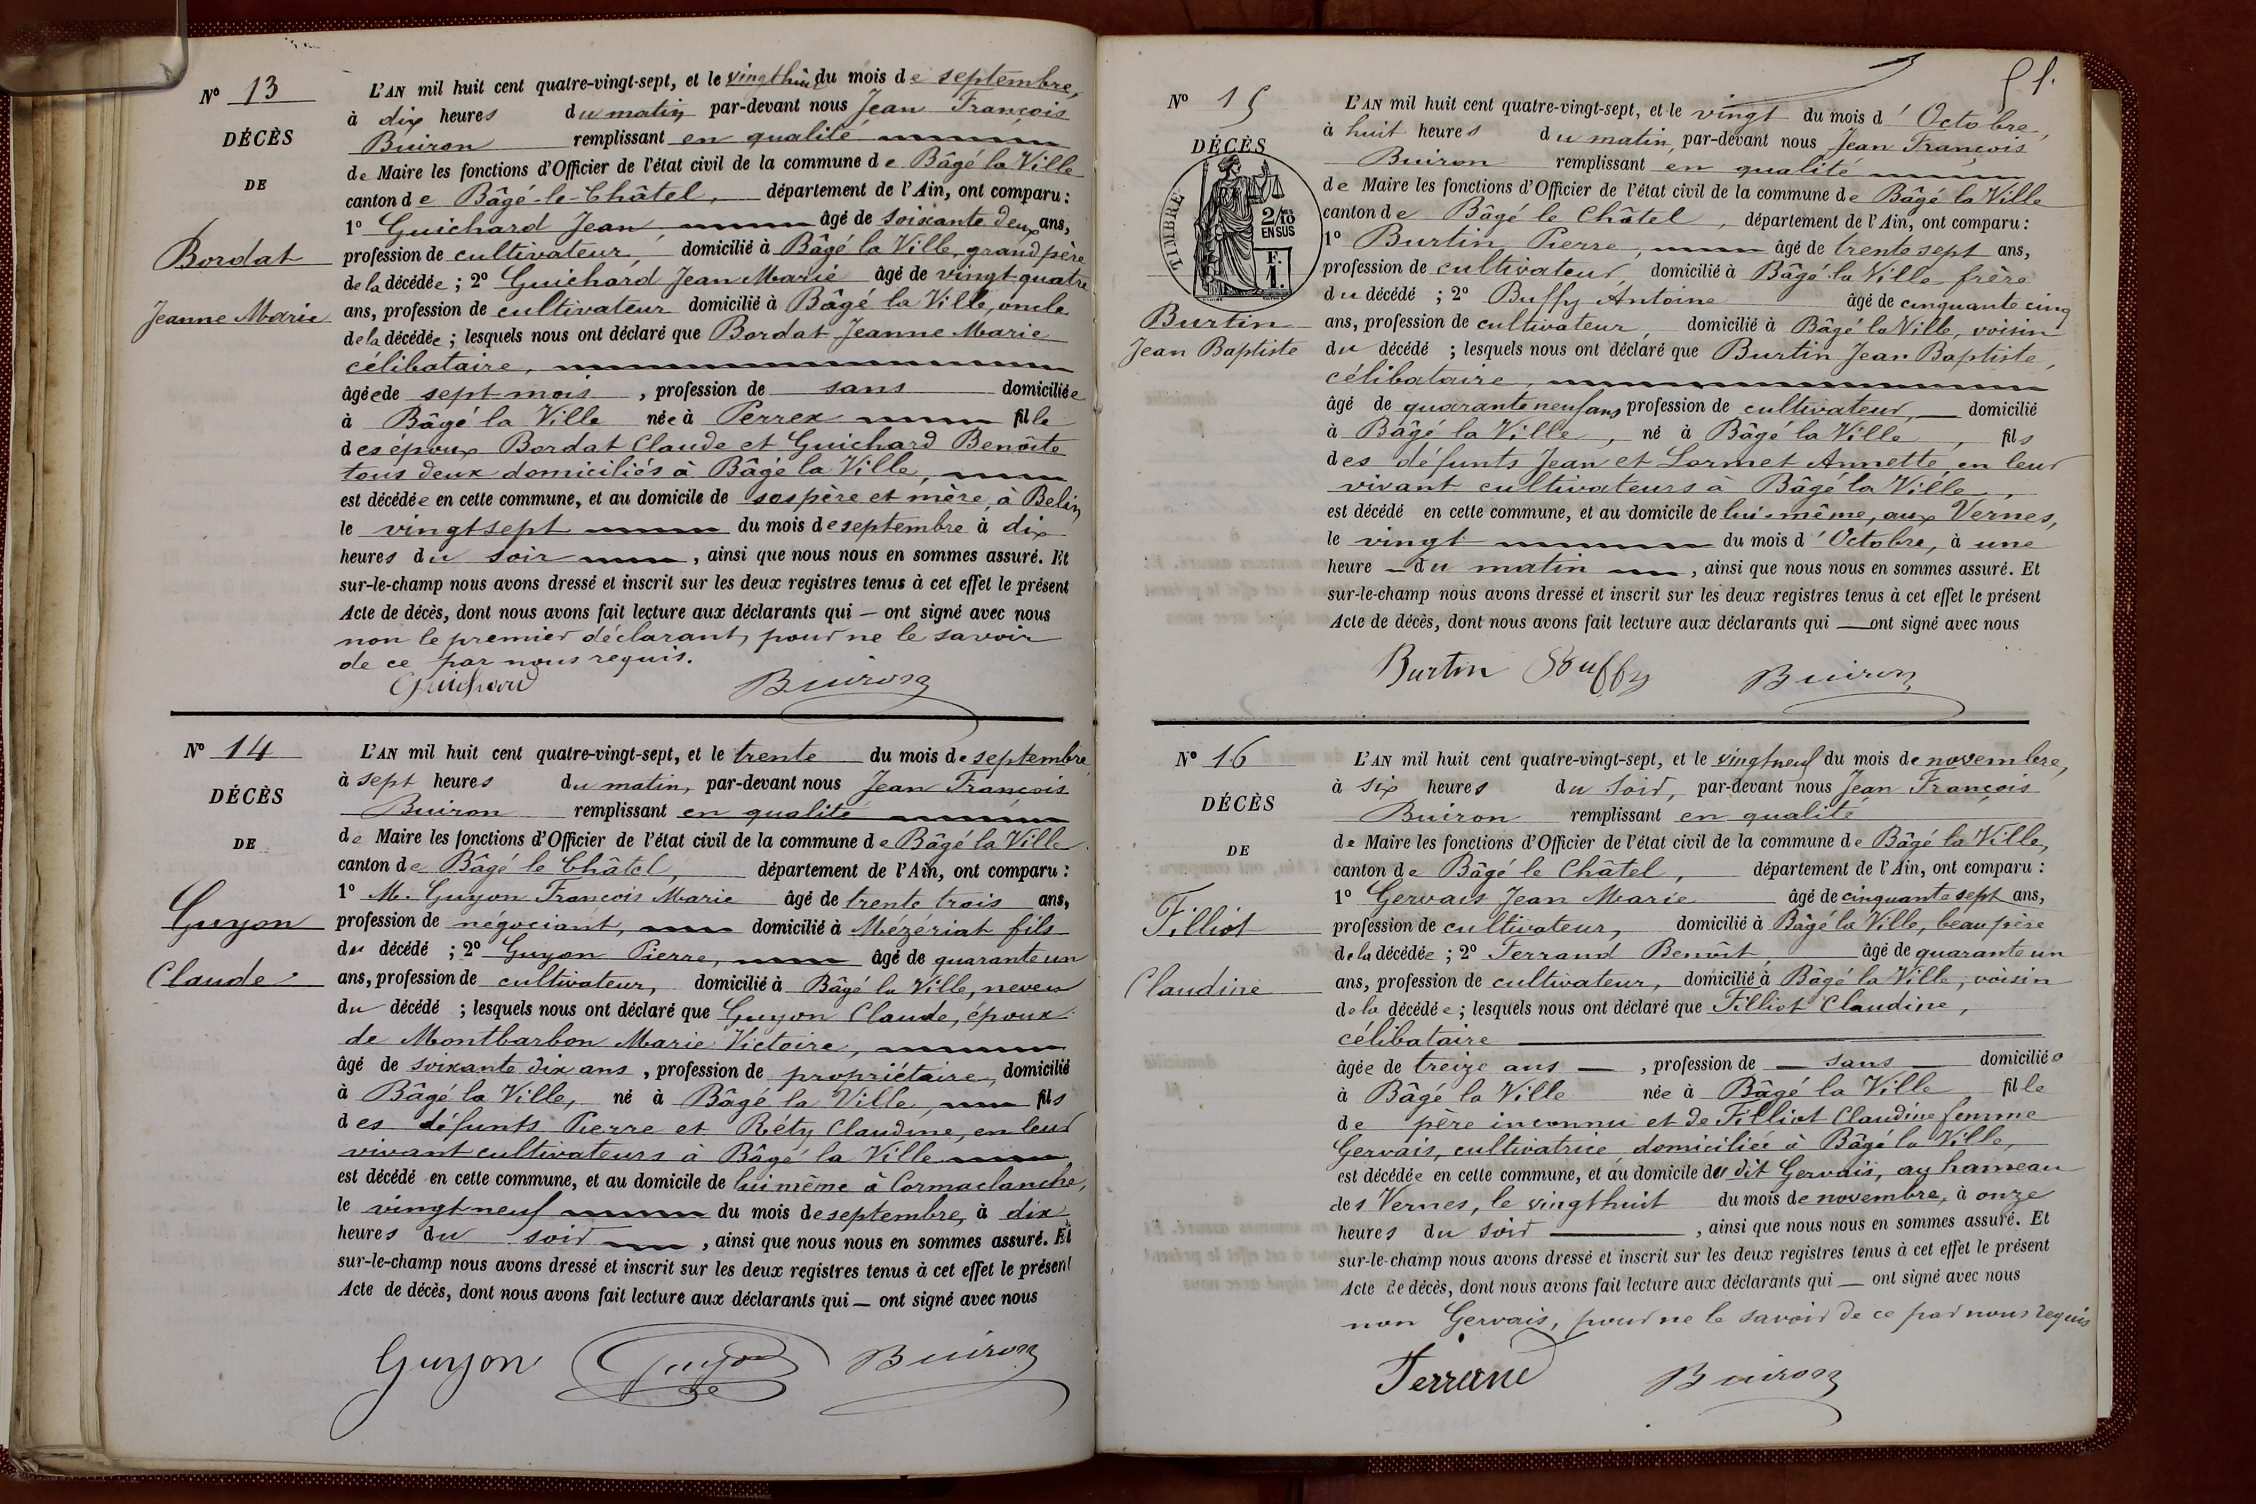 Nº 13
DÉCÈS
DE
Bordat
Jeanne Marie
L'AN mil huit cent quatre-vingt-sept, et le vingthuit du mois de septembre,
à dix heures du matin par-devant nous Jean François
Buiron remplissant en qualité
de Maire les fonctions d'Officier de l'état civil de la commune de Bâgé la Ville
canton de Bâgé-le-Châtel, département de l'Ain, ont comparu :
1º Guichard Jean âgé de soixante deux ans,
profession de cultivateur, domicilié à Bâgé la Ville, grand père
de la décédée ; 2º Guichard Jean Marie âgé de vingt quatre
ans, profession de cultivateur domicilié à Bâgé la Ville, oncle
de la décédée ; lesquels nous ont déclaré que Bordat Jeanne Marie
célibataire,
âgée de sept mois , profession de sans domiciliée
à Bâgé la Ville née à Perrex fille
des époux Bordat Claude et Guichard Benôite
tous deux domiciliés à Bâgé la Ville,
est décédée en cette commune, et au domicile de ses père et mère, à Belin
le vingt sept du mois de septembre à dix
heures du soir , ainsi que nous nous en sommes assuré. Et
sur-le-champ nous avons dressé et inscrit sur les deux registres tenus à cet effet le présent
Acte de décès, dont nous avons fait lecture aux déclarants qui — ont signé avec nous
non le premier déclarant, pour ne le savoir
de ce par nous requis.
Guichard Buiron
Nº 14
DÉCÈS
DE
Guyon
Claude
L'AN mil huit cent quatre-vingt-sept, et le trente du mois de septembre
à sept heures du matin, par-devant nous Jean François
Buiron remplissant en qualité
de Maire les fonctions d'Officier de l'état civil de la commune de Bâgé la Ville
canton de Bâgé le Châtel, département de l'Ain, ont comparu :
1º M. Guyon François Marie âgé de trente trois ans,
profession de négociant, domicilié à Mézériat fils
du décédé ; 2º Guyon Pierre, âgé de quarante un
ans, profession de cultivateur, domicilié à Bâgé la Ville, neveu
du décédé ; lesquels nous ont déclaré que Guyon Claude, époux
de Montbarbon Marie Victoire,
âgé de soixante dix ans , profession de propriétaire, domicilié
à Bâgé la Ville, né à Bâgé la Ville, fils
des défunts Pierre et Réty Claudine, en leur
vivant cultivateurs à Bâgé la Ville
est décédé en cette commune, et au domicile de lui même à Cormaclanche,
le vingt neuf du mois de septembre, à dix
heures du soir , ainsi que nous nous en sommes assuré. Et
sur-le-champ nous avons dressé et inscrit sur les deux registres tenus à cet effet le présent
Acte de décès, dont nous avons fait lecture aux déclarants qui — ont signé avec nous
Guyon Guyon Buiron
51.
Nº 15
DÉCÈS
TIMBRE
2/10 EN SUS
F. 1.
Burtin
Jean Baptiste
L'AN mil huit cent quatre-vingt-sept, et le vingt du mois d'Octobre,
à huit heures du matin, par-devant nous Jean François
Buiron remplissant en qualité
de Maire les fonctions d'Officier de l'état civil de la commune de Bâgé la Ville
canton de Bâgé le Châtel, département de l'Ain, ont comparu :
1º Burtin Pierre, âgé de trente sept ans,
profession de cultivateur, domicilié à Bâgé la Ville frère
du décédé ; 2º Buffy Antoine âgé de cinquante cinq
ans, profession de cultivateur, domicilié à Bâgé la Ville, voisin
du décédé ; lesquels nous ont déclaré que Burtin Jean Baptiste,
célibataire,
âgé de quarante neuf ans profession de cultivateur, — domicilié
à Bâgé la Ville, né à Bâgé la Ville, fils
des défunts Jean et Lormet Annette, en leur
vivant cultivateurs à Bâgé la Ville,
est décédé en cette commune, et au domicile de lui-même, aux Vernes,
le vingt du mois d'Octobre, à une
heure — du matin , ainsi que nous nous en sommes assuré. Et
sur-le-champ nous avons dressé et inscrit sur les deux registres tenus à cet effet le présent
Acte de décès, dont nous avons fait lecture aux déclarants qui — ont signé avec nous
Burtin Buffy Buiron
Nº 16
DÉCÈS
DE
Filliot
Claudine
L'AN mil huit cent quatre-vingt-sept, et le vingt neuf du mois de novembre,
à six heures du soir, par-devant nous Jean François
Buiron remplissant en qualité
de Maire les fonctions d'Officier de l'état civil de la commune de Bâgé la Ville,
canton de Bâgé le Châtel, département de l'Ain, ont comparu :
1º Gervais Jean Marie âgé de cinquante sept ans,
profession de cultivateur, domicilié à Bâgé la Ville, beau père
de la décédée ; 2º Ferrand Benoît, âgé de quarante un
ans, profession de cultivateur, domicilié à Bâgé la Ville, voisin
de la décédée ; lesquels nous ont déclaré que Filliot Claudine,
célibataire
âgée de treize ans — , profession de — sans — domiciliée
à Bâgé la Ville née à Bâgé la Ville fille
de père inconnu et de Filliot Claudine femme
Gervais, cultivatrice domiciliée à Bâgé la Ville,
est décédée en cette commune, et au domicile du dit Gervais, au hameau
des Vernes, le vingt huit du mois de novembre, à onze
heures du soir , ainsi que nous nous en sommes assuré. Et
sur-le-champ nous avons dressé et inscrit sur les deux registres tenus à cet effet le présent
Acte de décès, dont nous avons fait lecture aux déclarants qui — ont signé avec nous
non Gervais, pour ne le savoir de ce par nous requis
Ferrand Buiron